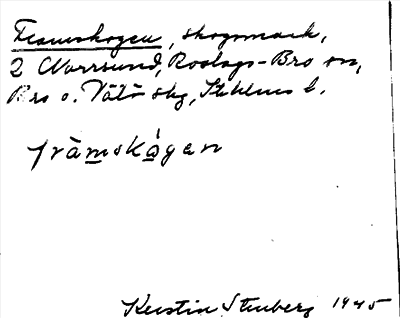 Framskogen, skogsmark,
2 Norrsund, Roslags-Bro sn,
Bro o. Vätö skg, Sthlms l.
frȧ̀mskȧ́gen
Kerstin Stenberg 1945